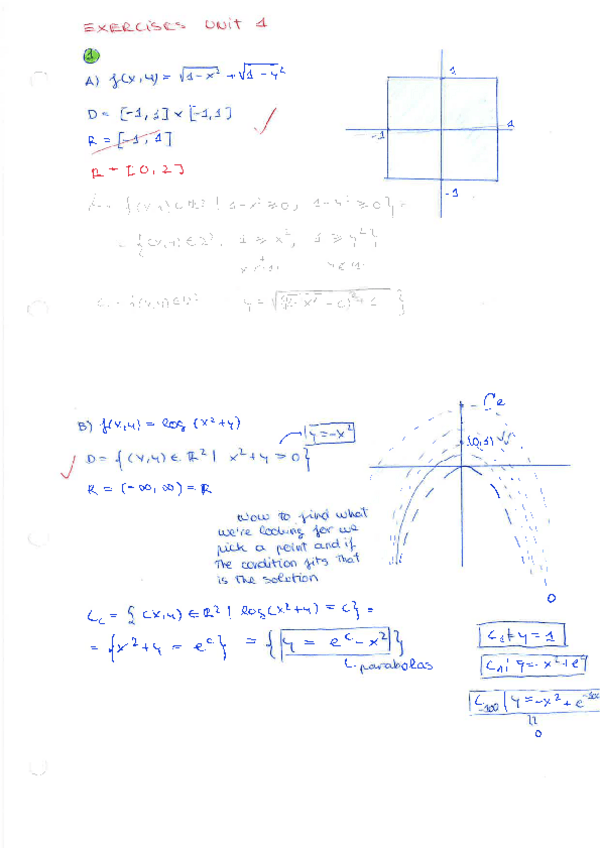 EXERCISES UNIT 1
1
A) f(x,y) = √1-x² + √1-y²
D = [-1,1] x [-1,1]
R = [-1, 1]
R = [0, 2]
1
-1
1
-1
= {(x,y) ∈ R² | 1-x² ≥ 0, 1-y² ≥ 0} =
= {(x,y) ∈ R², 1 ≥ x², 1 ≥ y²}
B) f(x,y) = log (x²+y)
y=-x²
D = {(x,y) ∈ R² | x²+y > 0}
R = (-∞, ∞) = R
(0,1)
Now to find what
we're looking for we
pick a point and if
the condition fits that
is the solution
0
Cc = {(x,y) ∈ R² | log(x²+y) = c} =
= {x²+y = e^c} = {y = e^c - x²}
parabolas
C₁| y = -x²+e
C₋₁₀₀ | y = -x² + e⁻¹⁰⁰
0